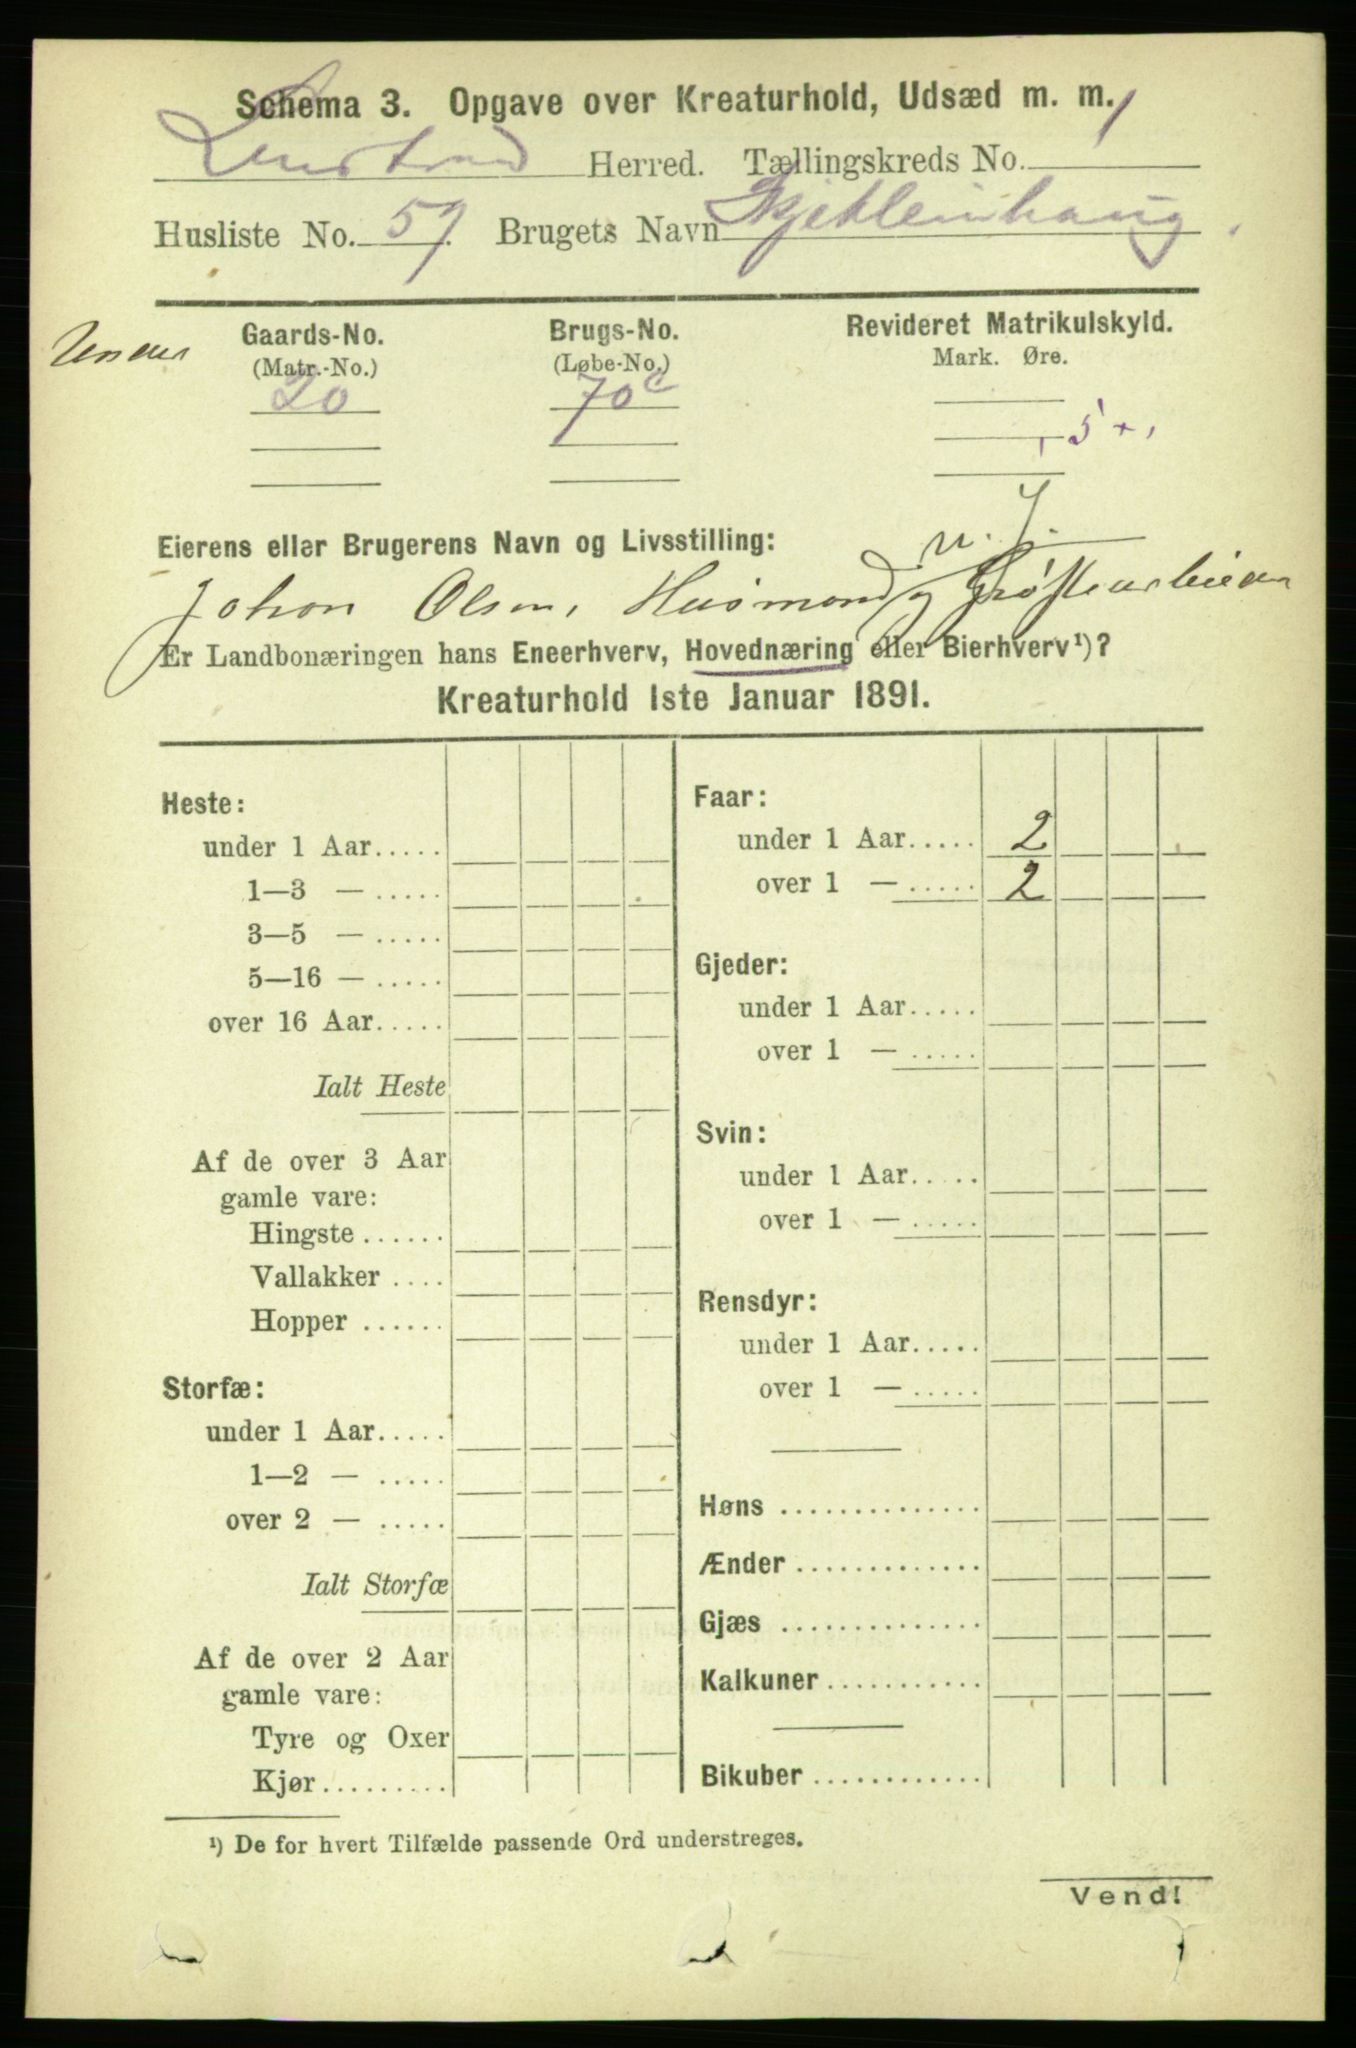 Schema 3. Opgave over Kreaturhold, Udsæd m. m.
Leinstrand Herred. Tællingskreds No. 1
Husliste No. 59. Brugets Navn
Under
Gaards-No. Brugs-No. Revideret Matrikulskyld.
(Matr.-No.) (Løbe-No.) Mark. Øre.
20 70c
Eierens eller Brugerens Navn og Livsstilling:
Johan Olsen, Husmand og Grøftearbeider
Er Landbonæringen hans Eneerhverv, Hovednæring eller Bierhverv¹)?
Kreaturhold 1ste Januar 1891.
Heste:
under 1 Aar.....
1—3 — .....
3—5 — .....
5—16 — .....
over 16 Aar.....
Ialt Heste
Af de over 3 Aar
gamle vare:
Hingste ......
Vallakker ....
Hopper ......
Storfæ:
under 1 Aar.....
1—2 — .....
over 2 — .....
Ialt Storfæ
Af de over 2 Aar
gamle vare:
Tyre og Oxer
Kjør.........
Faar:
under 1 Aar..... 2
over 1 — ..... 2
Gjeder:
under 1 Aar.....
over 1 — .....
Svin:
under 1 Aar.....
over 1 — .....
Rensdyr:
under 1 Aar.....
over 1 — .....
Høns ..............
Ænder .............
Gjæs ..............
Kalkuner ...........
Bikuber ............
¹) De for hvert Tilfælde passende Ord understreges.
Vend!